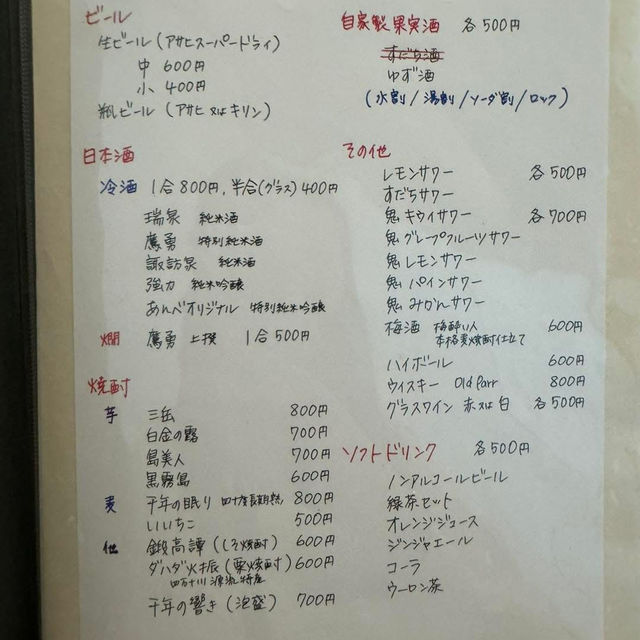 ビール
生ビール(アサヒスーパードライ)
中 600円
小 400円
瓶ビール(アサヒ又はキリン)
日本酒
冷酒 1合800円,半合(グラス)400円
瑞泉 純米酒
鷹勇 特別純米酒
諏訪泉 純米酒
強力 純米吟醸
あんべオリジナル 特別純米吟醸
燗 鷹勇 上撰 1合500円
焼酎
芋 三岳 800円
白金の露 700円
島美人 700円
黒霧島 600円
麦 千年の眠り 四十度長期熟 800円
いいちこ 500円
他 鍛高譚(しそ焼酎) 600円
ダバダ火振(栗焼酎) 600円
四万十川源流特産
千年の響き(泡盛) 700円
自家製果実酒 各500円
すだち酒
ゆず酒
(水割り/湯割り/ソーダ割り/ロック)
その他
レモンサワー 各500円
すだちサワー
鬼キウイサワー 各700円
鬼グレープフルーツサワー
鬼レモンサワー
鬼パインサワー
鬼みかんサワー
梅酒 梅酔い人 600円
本格麦焼酎仕立て
ハイボール 600円
ウィスキー Old Parr 800円
グラスワイン 赤又は白 各500円
ソフトドリンク 各500円
ノンアルコールビール
緑茶セット
オレンジジュース
ジンジャエール
コーラ
ウーロン茶